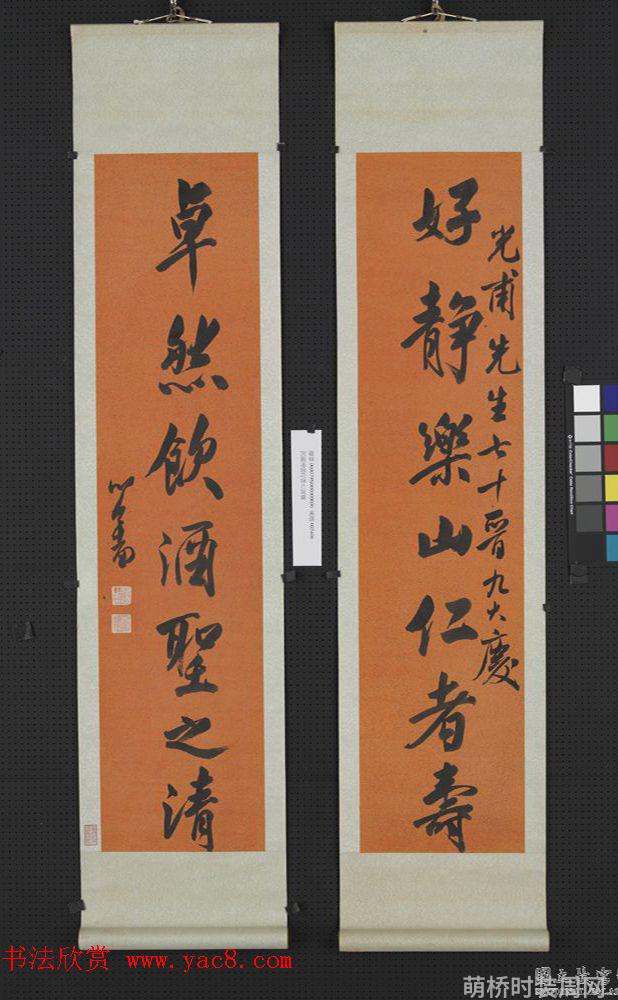 光甫先生七十晉九大慶
好靜樂山仁者壽
卓然飲酒聖之清
心畬
书法欣赏 www.yac8.com
萌桥时装周网